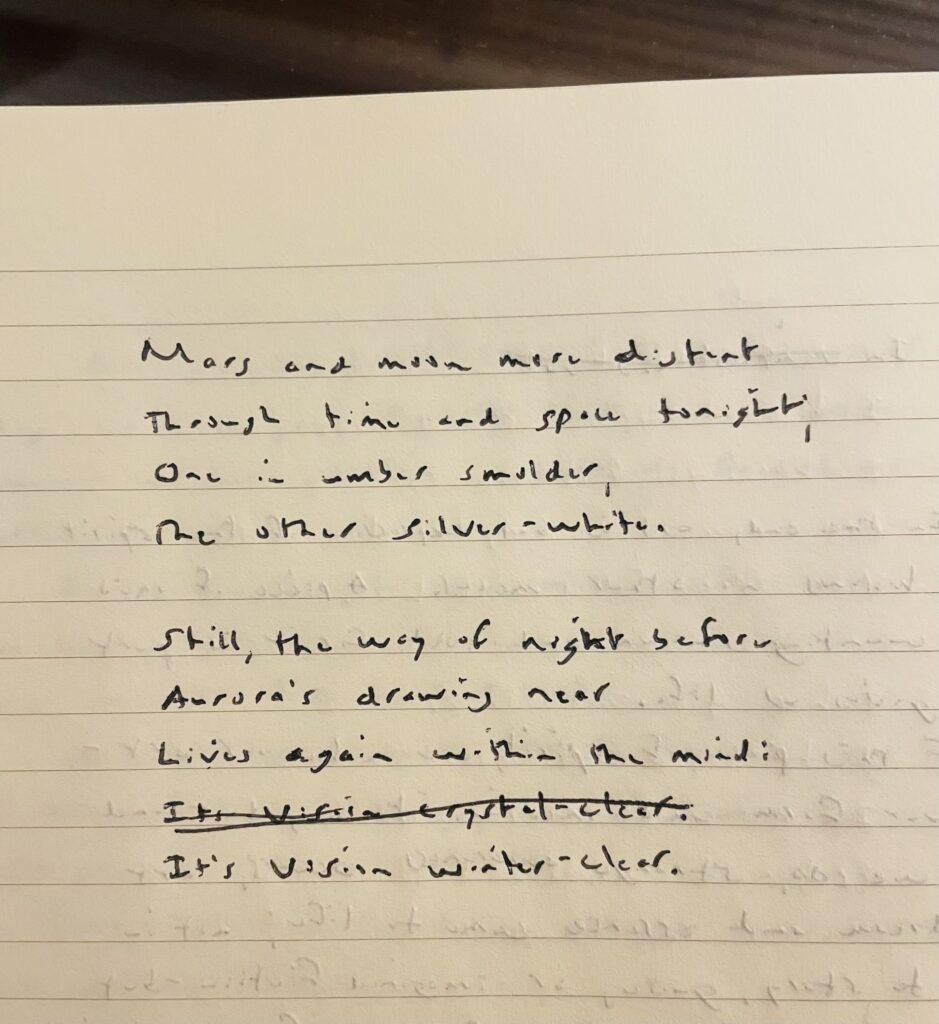 Mars and moon more distant
Through time and space tonight;
One in umber smolder,
The other silver-white.
Still, the way of night before
Aurora's drawing near
Lives again within the mind:
Its vision crystal-clear.
It's vision winter-clear.